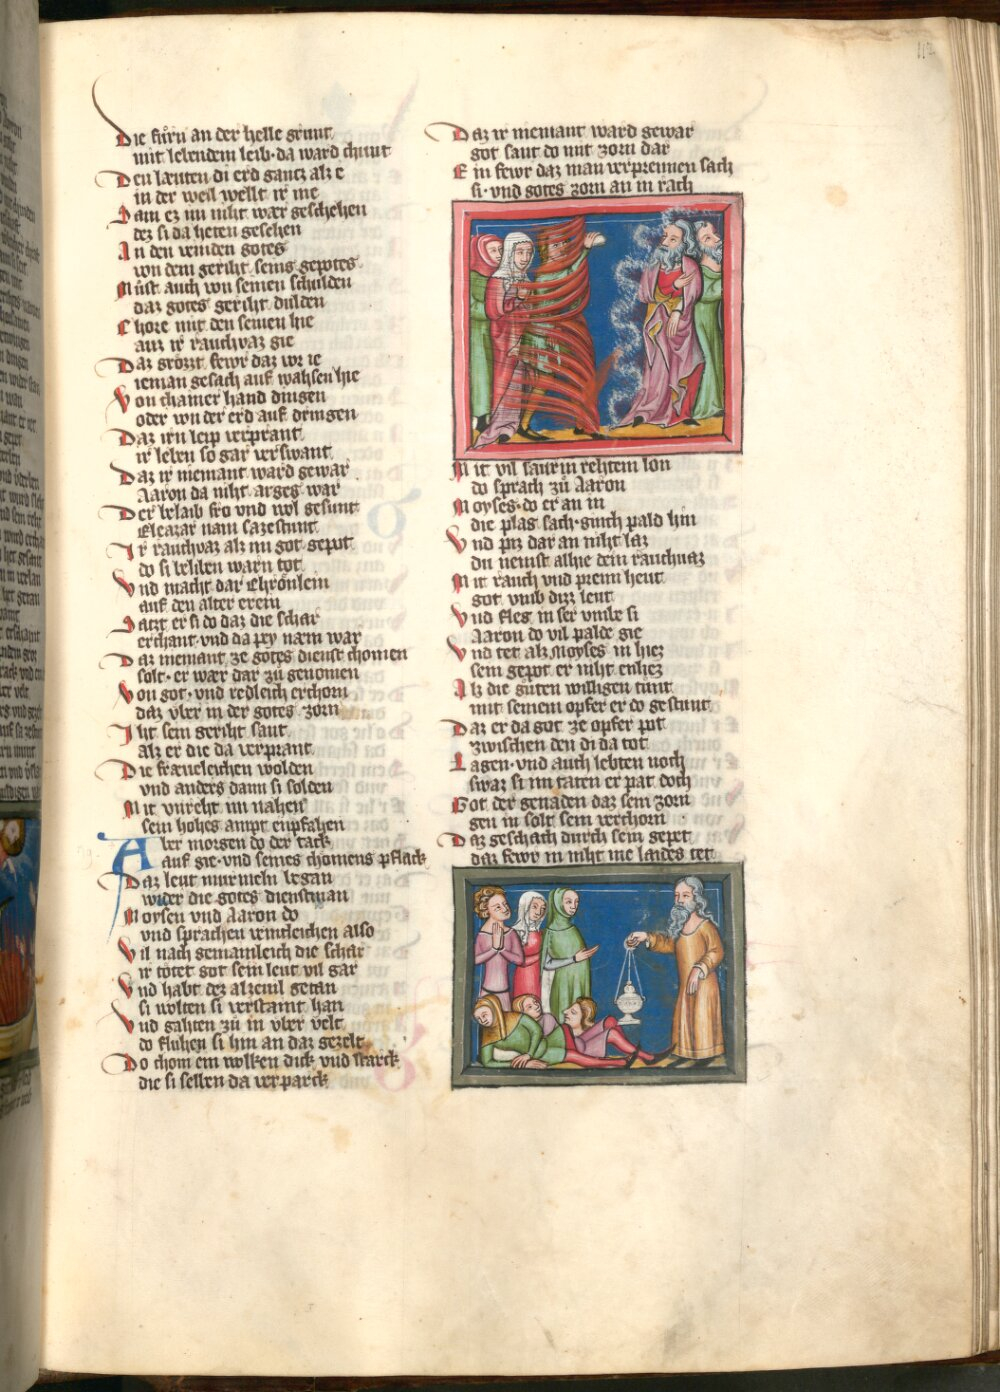 Die furn an der helle grunt
mit lebendem leib · da ward chunt
Den læuten di erd gantz alz e
in der weil wellt ir me
Sam ez nu niht wær geschehen
dez si da heten gesehen
An den veinden gotes
von dem geriht seins gepotes
Must auch von seinen schulden
daz gotes geriht dulden
Chore mit den seinen hie
auz ir rauchvaz gie
Daz grozzt fewr daz vor ie
ieman gesach auf wahsen hie
Von chainer hand dingen
oder von der erd auf dringen
Daz irn leip verprant
ir leben so gar verswant
Daz ir niemant ward gewar
Aaron da niht arges war
Der belaib fro und wol gesunt
Eleazar nam sazestunt
Ir rauchvaz alz im got gepot
do si beliben warn tot
Vnd macht dar Chronlein
auf den alter erein
Satzt er si do daz die schar
erchant · vnd da pey næm war
Daz niemant ze gotes dienst chomen
solt · er wær dar zu genomen
Von got · vnd redleich erchorn
daz vber in der gotes zorn
Iht sein geriht sant
alz er die da verprant
Die fræueleichen wolden
vnd anders dann si solden
Mit vnreht im nahen
sein hohes ampt enpfahen
Aber morgen do der tack
auf gie · vnd seines chomens pflack
Daz leut murmeln began
wider die gotes dienstman
Moysen vnd Aaron do
vnd sprachen veintleichen also
Vil nach gemainleich die schar
ir totet got sein leut vil gar
Vnd habt dez alzeuil getan
si wolten si verstaint han
Vnd gahten zu in vber velt
do fluhen si hin an daz gezelt
Do chom ein wolken dick vnd starck
die si sellen da verparck
Daz ir niemant ward gewar
got sant do mit zorn dar
Ein fewr daz man verprennen sach
si · vnd gotes zorn an in rach
Mit vil saurm rehtem lon
do sprach zu Aaron
Moyses · do er an in
die plag sach · ginch pald hin
Vnd piz dar an niht laz
du nemst alhie dein rauchuaz
Mit rauch vnd prenn heut
got vmb ditz leut
Vnd fleg in ser vmbe si
Aaron do vil palde gie
Vnd tet alz Moyses in hiez
sein gepot er niht enliez
Alz die guten willigen tunt
mit seinem opfer er do gestunt
Daz er da got ze opfer pot
zwischen den di da tot
Lagen · vnd auch lebten noch
swaz si im taten er pat doch
Got der genaden daz sein zorn
gen in solt sein verchorn
Daz geschach durch sein gepet
daz fewr in niht me laides tet